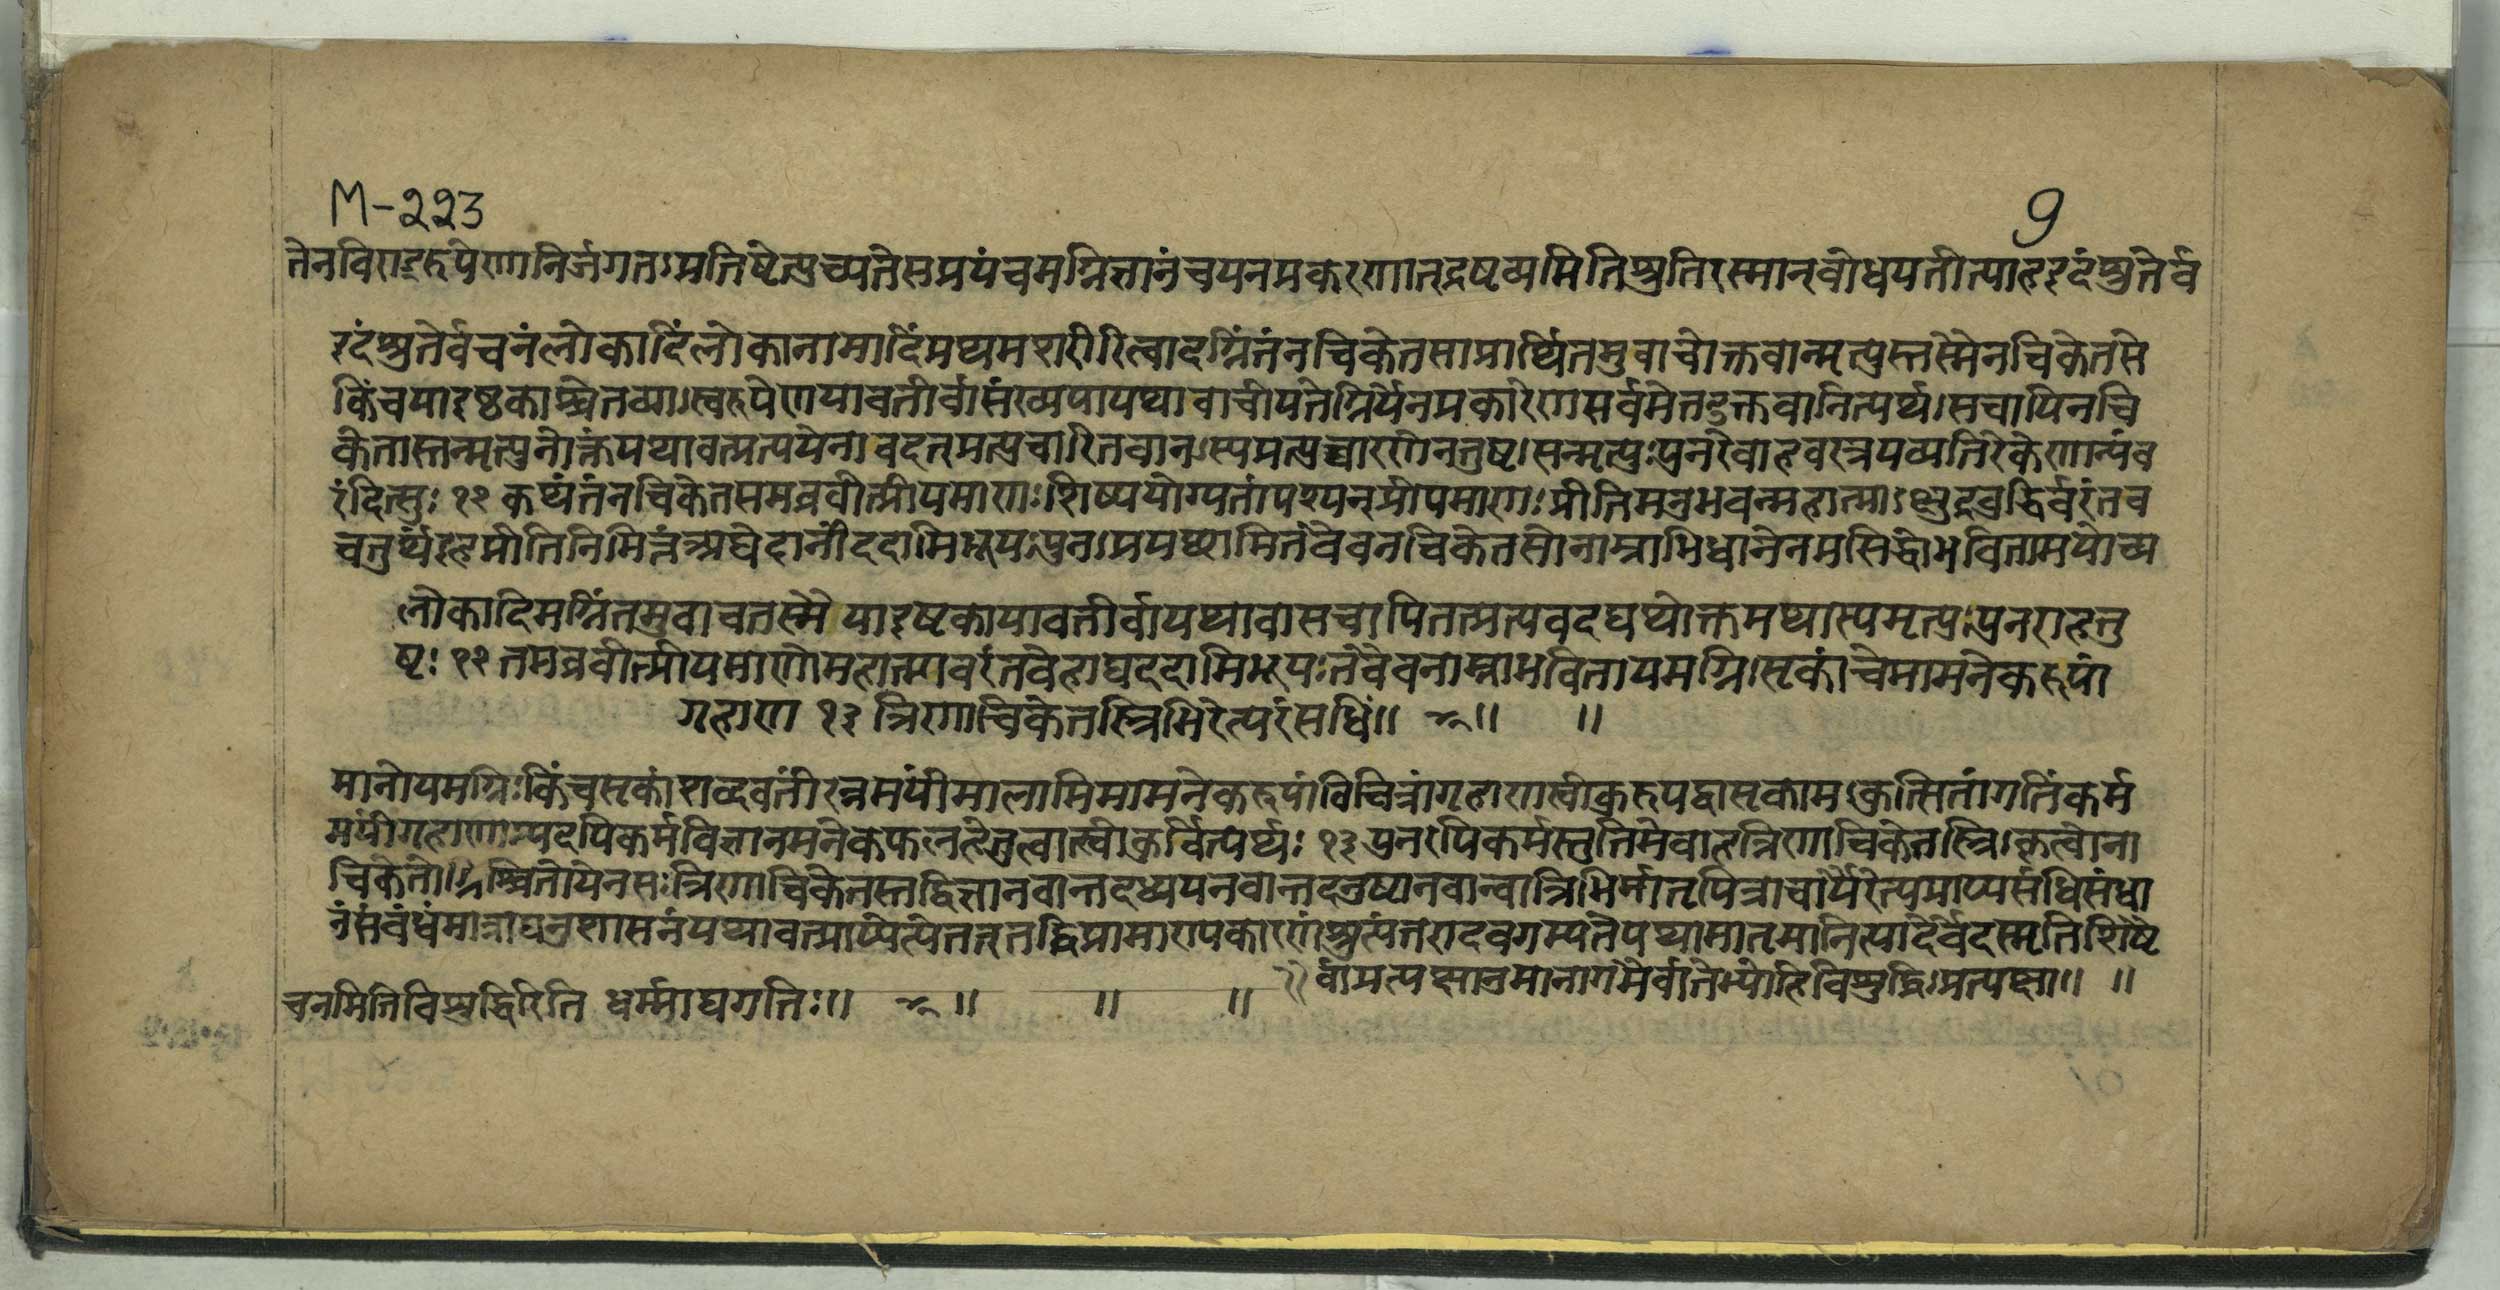 M-223
9
तेनविराड्रूपेणाग्निर्जगतःप्रतिष्ठेत्युच्यतेसप्रपंचमग्निज्ञानंचयनप्रकरणात्द्रष्टव्यमितिश्रुतिरस्मान्बोधयतीत्याहइदंश्रुतेर्व
इदंश्रुतेर्वचनंलोकादिंलोकानामादिंप्रथमशरीरित्वादग्निंतंनचिकेतसाप्रार्थितमुवाचोक्तवान्मृत्युस्तस्मैनचिकेतसे
किंचयाइष्टकाश्चेतव्याःस्वरूपेणयावतीर्वासंख्ययायथावाचीयतेग्निर्येनप्रकारेणसर्वमेतदुक्तवानित्यर्थःसचापिनचि
केतास्तन्मृत्युनोक्तंयथावत्प्रत्ययेनावदत्प्रत्युच्चारितवान्अस्यप्रत्युच्चारणेनतुष्टःसन्मृत्युःपुनरेवाहवरत्रयव्यतिरेकेणान्यंव
रंदित्सुः १२ कथंतंनचिकेतसमब्रवीत्प्रीयमाणःशिष्ययोग्यतांपश्यन्प्रीयमाणःप्रीतिमनुभवन्महात्माऽक्षुद्रबुद्धिर्वरंतव
चतुर्थमिहप्रीतिनिमित्तंअद्येदानींददामिभूयःपुनःप्रयच्छामितवैवनचिकेतसोनाम्नाभिधानेनप्रसिद्धोभवितामयोच्य
लोकादिमग्निंतमुवाचतस्मै याइष्टकायावतीर्वायथावासचापितत्प्रत्यवदद्यथोक्तमथास्यमृत्युःपुनराहतु
ष्टः १२ तमब्रवीत्प्रीयमाणोमहात्मावरंतवेहाद्यददामिभूयःतवैवनाम्नाभवितायमग्निःसृकांचेमामनेकरूपां
गृहाण १३ त्रिणाचिकेतस्त्रिभिरेत्यसंधिं॥ ॥ ॥
मानोयमग्निःकिंचसृकांशब्दवतींरत्नमयींमालामिमामनेकरूपांविचित्रांगृहाणस्वीकुरुयद्वासृकामऽकुत्सितांगतिंकर्म
मयींगृहाणअन्यदपिकर्मविज्ञानमनेकफलहेतुत्वात्स्वीकुर्वित्यर्थः १३ पुनरपिकर्मस्तुतिमेवाहत्रिणाचिकेतस्त्रिःकृत्वोना
चिकेतोग्निश्चितोयेनसःत्रिणाचिकेतस्तद्विज्ञानवान्तदध्ययनवान्तदनुष्ठानवान्वात्रिभिर्मातृपित्राचार्यैरेत्यप्राप्यसंधिसंधा
नंसंबंधंमात्राद्यनुशासनंयथावत्प्राप्येत्येतत्तद्धिप्रामाण्यकारणंश्रुत्यंतरादवगम्यतेयथामातृमानित्यादेर्वेदस्मृतिशिष्टै
र्वाप्रत्यक्षानुमानागमैर्वातेभ्योहिविशुद्धिःप्रत्यक्षा॥ ॥
चनमितिविशुद्धिरिति धर्म्माद्यगतिः॥ ॥ ॥ ॥